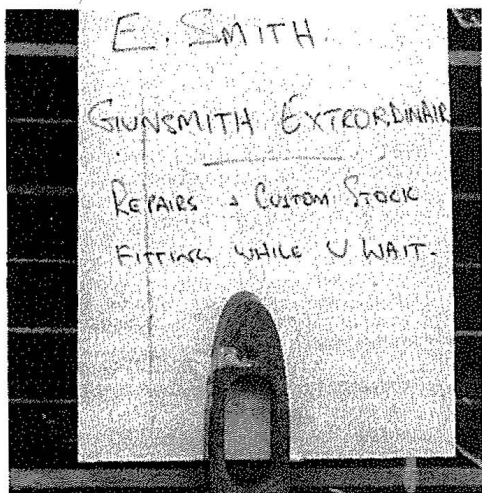 E. SMITH
GUNSMITH EXTRORDINAIR
REPAIRS & CUSTOM STOCK
FITTING WHILE U WAIT.